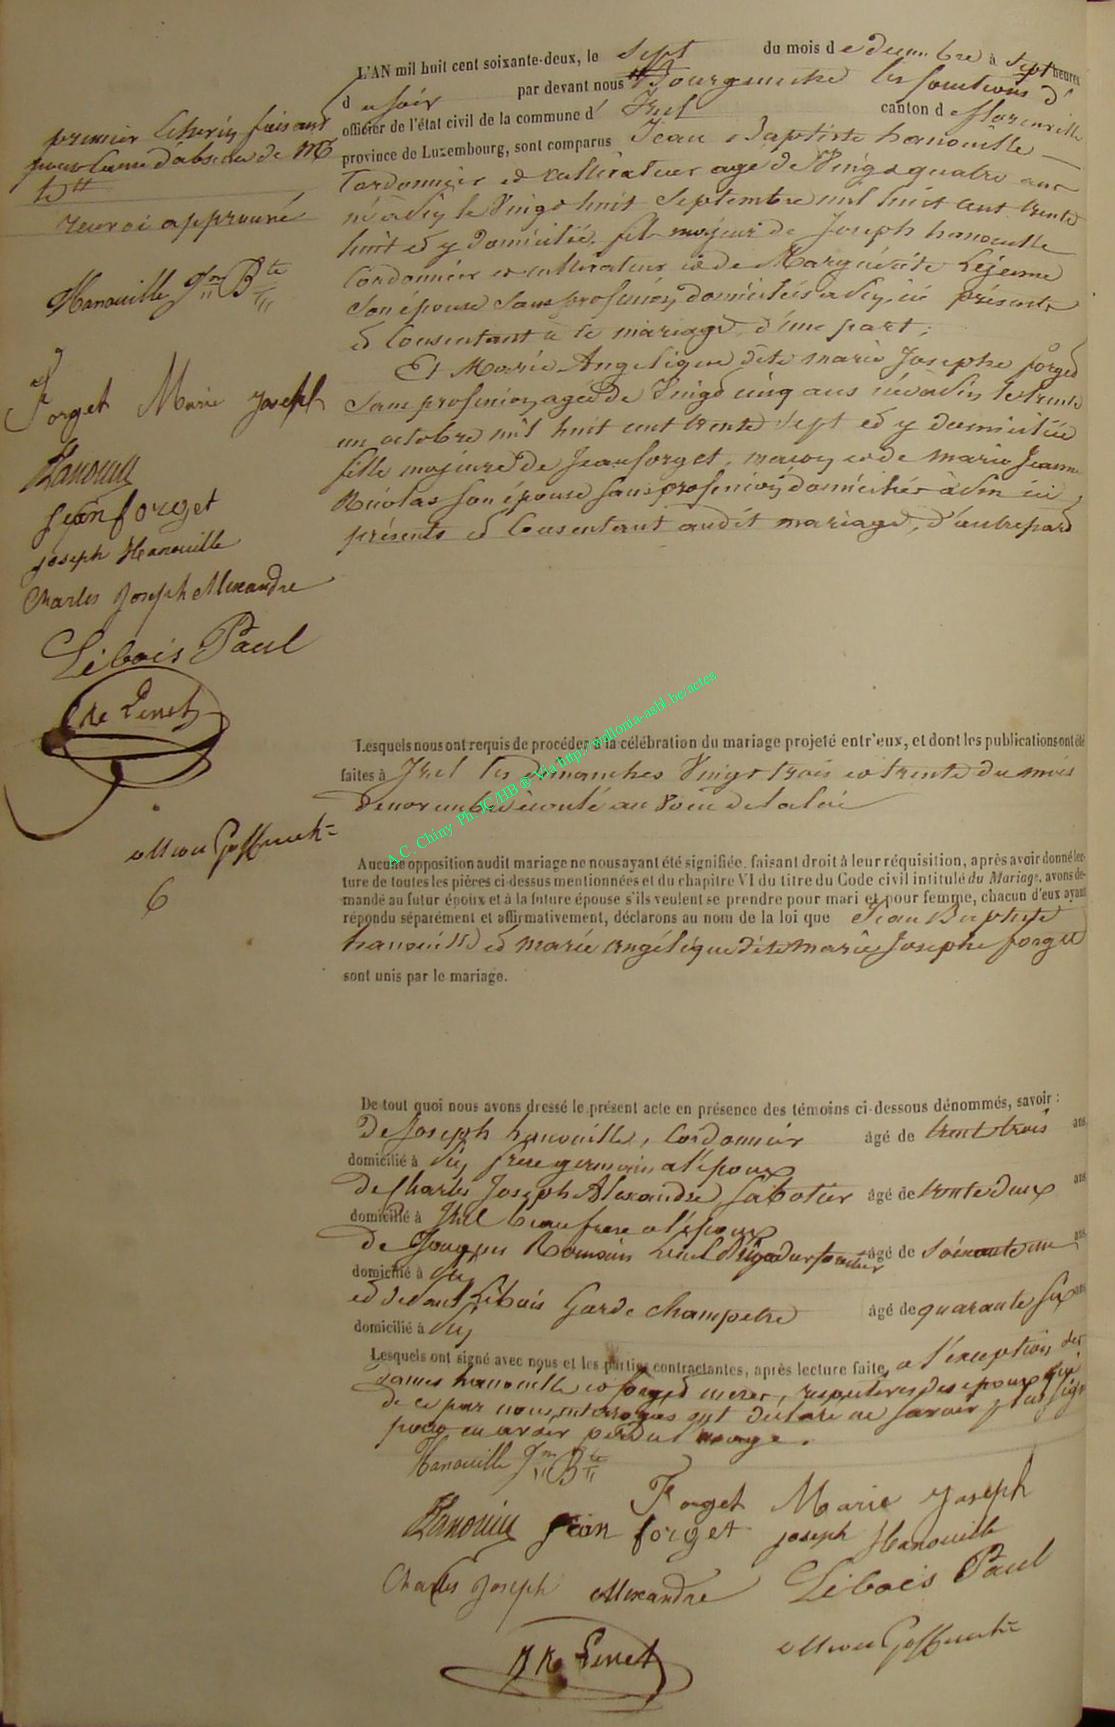 L'AN mil huit cent soixante-deux, le sept du mois de decembre à sept heures
du soir par devant nous Bourgmestre les fonctions d'
officier de l'état civil de la commune d' Izel canton de florenville
province de Luxembourg, sont comparus Jean Baptiste hanouille
Cordonnier et cultivateur agé de Vingt quatre ans
né à Viy le Vingt huit Septembre mil huit cent trente
huit et y domicilié, fils majeur de Joseph hanouille
Cordonnier et cultivateur et de Marguérite Lejeune
Son épouse Sans profession domiciliés à Viy, ici présents
et Consentant à ce mariage, d'une part;
Et Marie Angelique dite marie Josephe forget
Sans profession, agée de Vingt cinq ans née à le trente
un octobre mil huit cent trente sept et y domiciliée
fille majeure de Jean forget, et de marie Jeanne
Nicolas Son épouse sans profession domiciliés à ici
présents et Consentant audit mariage, d'autre part
premier Echevin faisant
pour cause d'absence de Mr
le
renvoi approuvé
Hanouille Jn Bte
Forget Marie Joseph
Hanouille
jean forget
joseph Hanouille
Charles Joseph Alexandre
Libois Paul
Lesquels nous ont requis de procéder à la célébration du mariage projeté entr'eux, et dont les publications ont été
faites à Izel les dimanches Vingt trois et trente du mois
de novembre écoulé au Voeu de la loi
Aucune opposition audit mariage ne nous ayant été signifiée, faisant droit à leur réquisition, après avoir donné lec-
ture de toutes les pièces ci-dessus mentionnées et du chapitre VI du titre du Code civil intitulé du Mariage, avons de-
mandé au futur époux et à la future épouse s'ils veulent se prendre pour mari et pour femme, chacun d'eux ayant
répondu séparément et affirmativement, déclarons au nom de la loi que Jean Baptiste
hanouille et marie angélique dite marie Josephe forget
sont unis par le mariage.
6
A.C. Chiny Ph. JC.HB ® Via http://wallonia-asbl.be/actes
De tout quoi nous avons dressé le présent acte en présence des témoins ci-dessous dénommés, savoir :
De Joseph hanouille, Cordonnier âgé de trente trois ans
domicilié à Viy frère germain à l'époux
De Charles Joseph Alexandre Sabotier âgé de trente deux ans
domicilié à Izel beau frere à l'époux
de Jacques Romain âgé de soixante un ans
domicilié à
et de Paul Libois Garde champetre âgé de quarante six ans
domicilié à Viy
Lesquels ont signé avec nous et les parties contractantes, après lecture faite, à l'exception des
dames hanouille et forget meres, des époux qui
de ce par nous interrogés ont déclaré ne savoir plus
pour en avoir perdu l'usage.
Hanouille Jn Bte
Forget Marie Joseph
Hanouille jean forget joseph Hanouille
Charles Joseph Alexandre Libois Paul